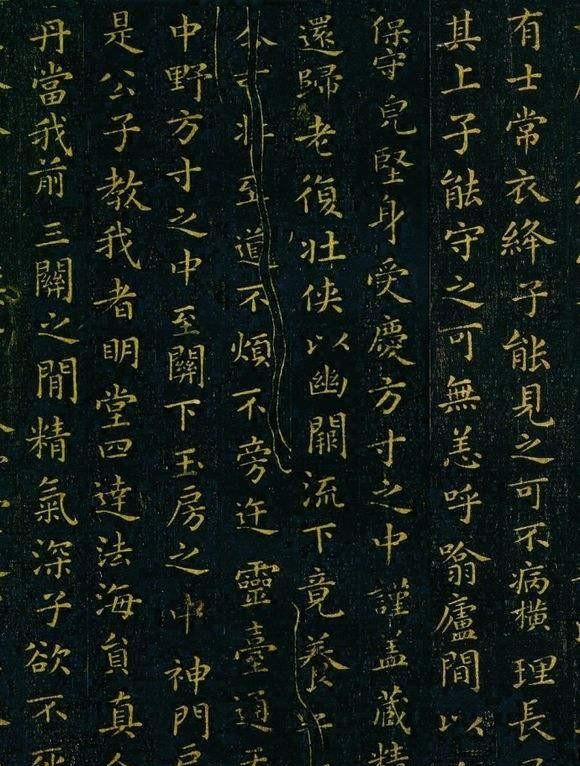 有士常衣絳子能見之可不病橫理長
其上子能守之可無恙呼噏廬間以
保守皃堅身受慶方寸之中謹盖藏精
還歸老復壯俠以幽闕流下竟養
非至道不煩不旁迕靈臺通天
中野方寸之中至關下玉房之中神門戶
是公子教我者明堂四達法海員真人
丹當我前三關之間精氣深子欲不死